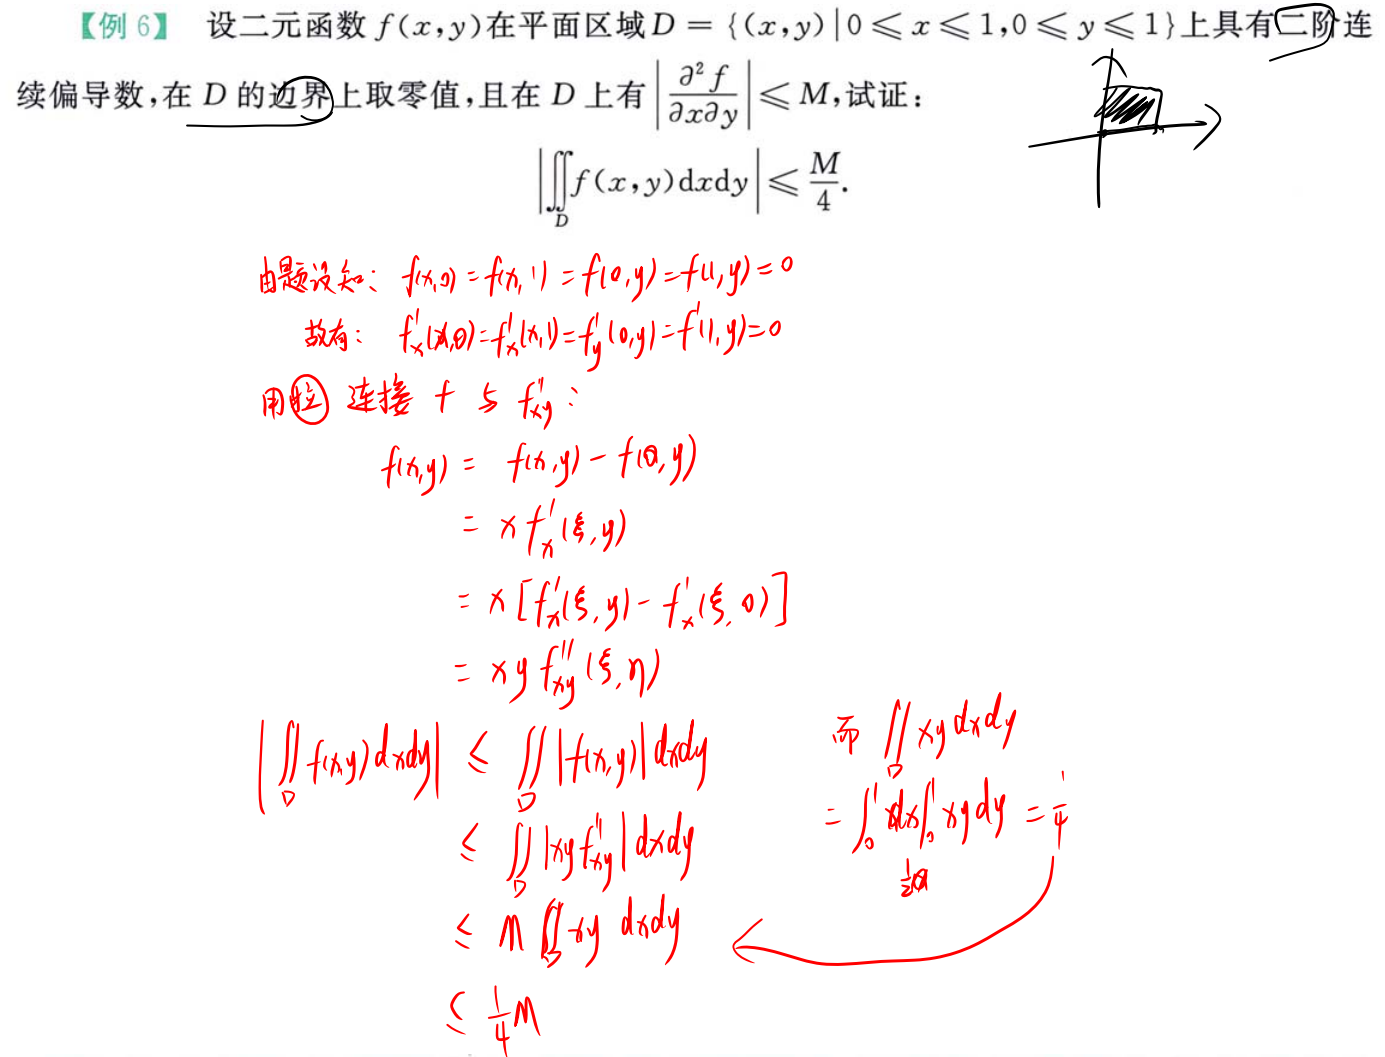 【例 6】 设二元函数 f(x,y)在平面区域 D = {(x,y)|0 ≤ x ≤ 1,0 ≤ y ≤ 1}上具有二阶连
续偏导数,在 D 的边界上取零值,且在 D 上有 |∂²f/∂x∂y| ≤ M,试证:
|∬_D f(x,y)dxdy| ≤ M/4.
由题设知: f(x,0)=f(x,1)=f(0,y)=f(1,y)=0
故有: f'_x(x,0)=f'_x(x,1)=f'_y(0,y)=f'(1,y)=0
用拉 连接 f 与 f''_xy:
f(x,y) = f(x,y) - f(0,y)
= x f'_x(ξ,y)
= x[f'_x(ξ,y) - f'_x(ξ,0)]
= xy f''_xy(ξ,η)
|∬_D f(x,y)dxdy| ≤ ∬_D |f(x,y)|dxdy
≤ ∬_D |xy f''_xy|dxdy
≤ M ∬_D xy dxdy
≤ 1/4 M
而 ∬_D xy dxdy
= ∫_0^1 dx ∫_0^1 xy dy = 1/4